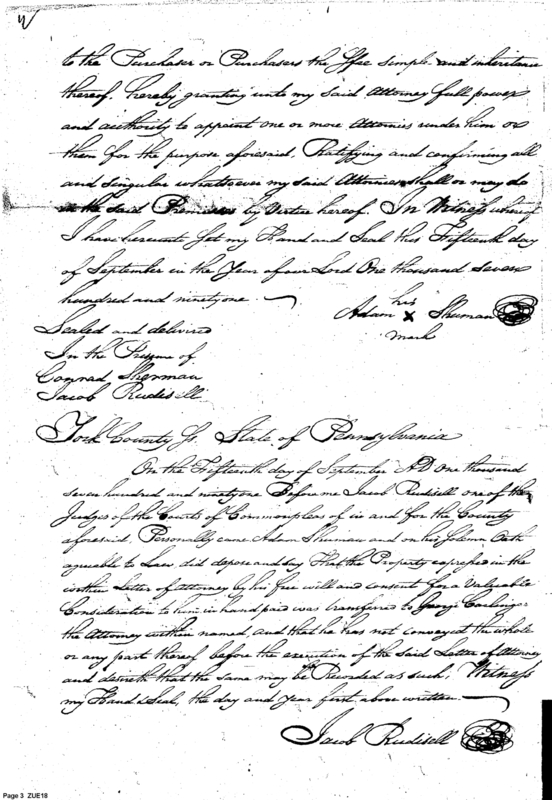 to the Purchaser or Purchasers the ffee simple and inheritance
thereof. hereby granting unto my said Attorney full power
and authority to appoint one or more Attornies under him or
them for the purpose aforesaid. Ratifying and confirming all
and singular whatsoever my said Attornies shall or may do
in the said Premisses by Vertue hereof. In Witness whereof
I have hereunto Set my Hand and Seal this Fifteenth day
of September in the Year of our Lord One thousand seven
hundred and ninetyone
his
Adam X Shuman
mark
Sealed and delivered
In the Presence of
Conrad Sherman
Jacob Rudisell
York County Ss. State of Pennsylvania
On the Fifteenth day of September AD One thousand
seven hundred and ninetyone Before me Jacob Rudisell one of the
Judges of the Courts of Common pleas of in and for the County
aforesaid. Personally came Adam Shuman and on his Solemn Oath
agreeable to Law did depose and Say That the Property expressed in the
within Letter of attorney by his free will and consent for a Valuable
Consideration to him in hand paid was transferred to George
the Attorney within named, and that he has not conveyed the whole
or any part thereof before the execution of the said Letter of Attorney
and desireth that the same may be Recorded as such; Witness
my Hand & Seal, the day and year first above written.
Jacob Rudisell
Page 3 ZUE18